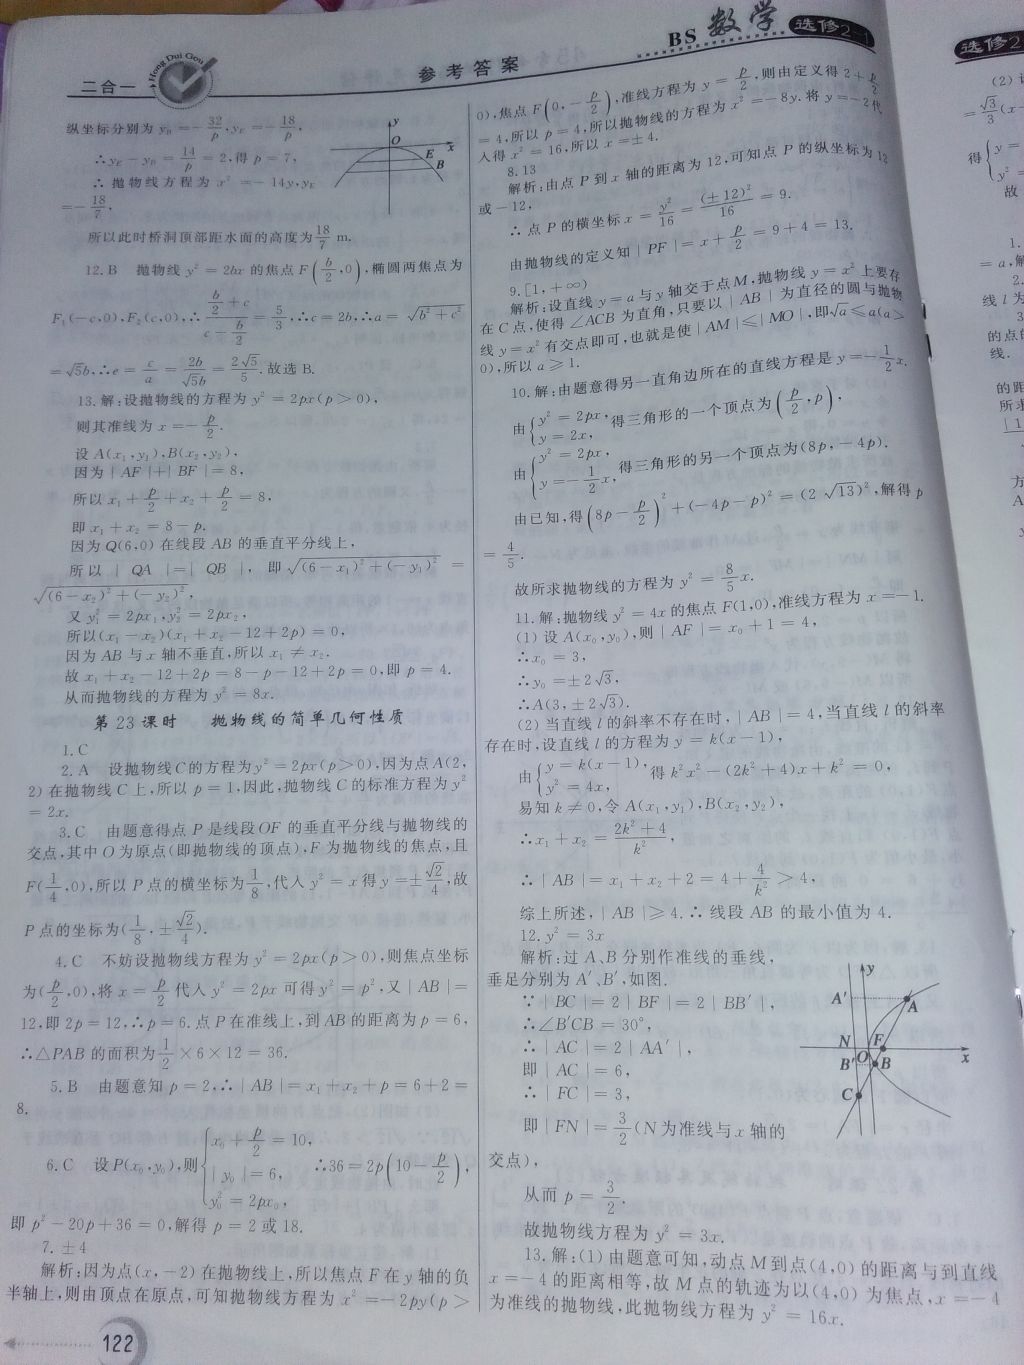 二合一
Hong Dui Gou
参考答案
BS 数学 选修2-1
纵坐标分别为 y_B=-32/p, y_E=-18/p,
∴y_E-y_B=14/p=2,得 p=7,
∴ 抛物线方程为 x²=-14y, y_E
=-18/7.
所以此时桥洞顶部距水面的高度为18/7 m.
y
O
E
x
B
12.B 抛物线 y²=2bx 的焦点 F(b/2,0),椭圆两焦点为
F₁(-c,0),F₂(c,0),∴(b/2+c)/(c-b/2)=5/3,∴c=2b,∴a=√(b²+c²)
=√5b,∴e=c/a=2b/√5b=2√5/5.故选 B.
13.解:设抛物线的方程为 y²=2px(p>0),
则其准线为 x=-p/2.
设 A(x₁,y₁),B(x₂,y₂),
因为|AF|+|BF|=8,
所以 x₁+p/2+x₂+p/2=8,
即 x₁+x₂=8-p.
因为 Q(6,0) 在线段 AB 的垂直平分线上,
所以 |QA|=|QB|, 即 √((6-x₁)²+(-y₁)²) =
√((6-x₂)²+(-y₂)²),
又 y₁²=2px₁,y₂²=2px₂,
所以(x₁-x₂)(x₁+x₂-12+2p)=0,
因为 AB 与 x 轴不垂直,所以 x₁≠x₂.
故 x₁+x₂-12+2p=8-p-12+2p=0,即 p=4.
从而抛物线的方程为 y²=8x.
第 23 课时 抛物线的简单几何性质
1.C
2.A 设抛物线C的方程为y²=2px(p>0),因为点A(2,
2)在抛物线 C 上,所以 p=1,因此,抛物线 C 的标准方程为 y²
=2x.
3.C 由题意得点 P 是线段OF 的垂直平分线与抛物线的
交点,其中 O 为原点(即抛物线的顶点),F 为抛物线的焦点,且
F(1/4,0),所以 P 点的横坐标为1/8,代入 y²=x 得 y=±√2/4,故
P 点的坐标为(1/8,±√2/4).
4.C 不妨设抛物线方程为 y²=2px(p>0),则焦点坐标
为(p/2,0),将 x=p/2代入 y²=2px 可得 y²=p²,又|AB|=
12,即 2p=12,∴p=6.点 P 在准线上,到 AB 的距离为 p=6,
∴△PAB 的面积为1/2×6×12=36.
5.B 由题意知 p=2,∴|AB|=x₁+x₂+p=6+2=
8.
6.C 设 P(x₀,y₀),则{x₀+p/2=10, |y₀|=6, y₀²=2px₀, ∴36=2p(10-p/2),
即 p²-20p+36=0,解得 p=2 或 18.
7.±4
解析:因为点(x,-2)在抛物线上,所以焦点 F 在 y 轴的负
半轴上,则由顶点在原点,可知抛物线方程为 x²=-2py(p>
122
0),焦点 F(0,-p/2),准线方程为 y=p/2,则由定义得 2+p/2
=4,所以 p=4,所以抛物线的方程为 x²=-8y.将 y=-2代
入得 x²=16,所以 x=±4.
8.13
解析:由点 P 到 x 轴的距离为 12,可知点 P 的纵坐标为 12
或-12,
∴点 P 的横坐标 x=y²/16=(±12)²/16=9.
由抛物线的定义知|PF|=x+p/2=9+4=13.
9.[1,+∞)
解析:设直线 y=a 与 y 轴交于点 M,抛物线 y=x² 上要存
在 C 点,使得∠ACB 为直角,只要以|AB|为直径的圆与抛物
线 y=x² 有交点即可,也就是使|AM|≤|MO|,即√a≤a(a>
0),所以 a≥1.
10.解:由题意得另一直角边所在的直线方程是 y=-1/2x.
由{y²=2px, y=2x, 得三角形的一个顶点为(p/2,p),
由{y²=2px, y=-1/2x, 得三角形的另一个顶点为(8p,-4p).
由已知,得(8p-p/2)²+(-4p-p)²=(2√13)²,解得 p
=4/5.
故所求抛物线的方程为 y²=8/5x.
11.解:抛物线 y²=4x 的焦点 F(1,0),准线方程为 x=-1.
(1)设 A(x₀,y₀),则|AF|=x₀+1=4,
∴x₀=3,
∴y₀=±2√3,
∴A(3,±2√3).
(2)当直线 l 的斜率不存在时,|AB|=4,当直线 l 的斜率
存在时,设直线 l 的方程为 y=k(x-1),
由{y=k(x-1), y²=4x, 得 k²x²-(2k²+4)x+k²=0,
易知 k≠0,令 A(x₁,y₁),B(x₂,y₂),
∴x₁+x₂=(2k²+4)/k²,
∴|AB|=x₁+x₂+2=4+4/k²>4,
综上所述,|AB|≥4.∴线段 AB 的最小值为 4.
12.y²=3x
解析:过 A、B 分别作准线的垂线,
垂足分别为 A′、B′,如图.
∵|BC|=2|BF|=2|BB′|,
∴∠B′CB=30°,
∴|AC|=2|AA′|,
即|AC|=6,
∴|FC|=3,
即|FN|=3/2(N 为准线与 x 轴的
交点),
从而 p=3/2.
故抛物线方程为 y²=3x.
y
A′
A
N
F
B′
O
B
x
C
13.解:(1)由题意可知,动点 M 到点(4,0)的距离与到直线
x=-4 的距离相等,故 M 点的轨迹为以(4,0)为焦点,x=-4
为准线的抛物线,此抛物线方程为 y²=16x.
选修2
(2)
=√3/3(x-
得{y=
y²=
故
1.
=a,解
2.
线 l 为
3
的点的
线.
的距
所求
方